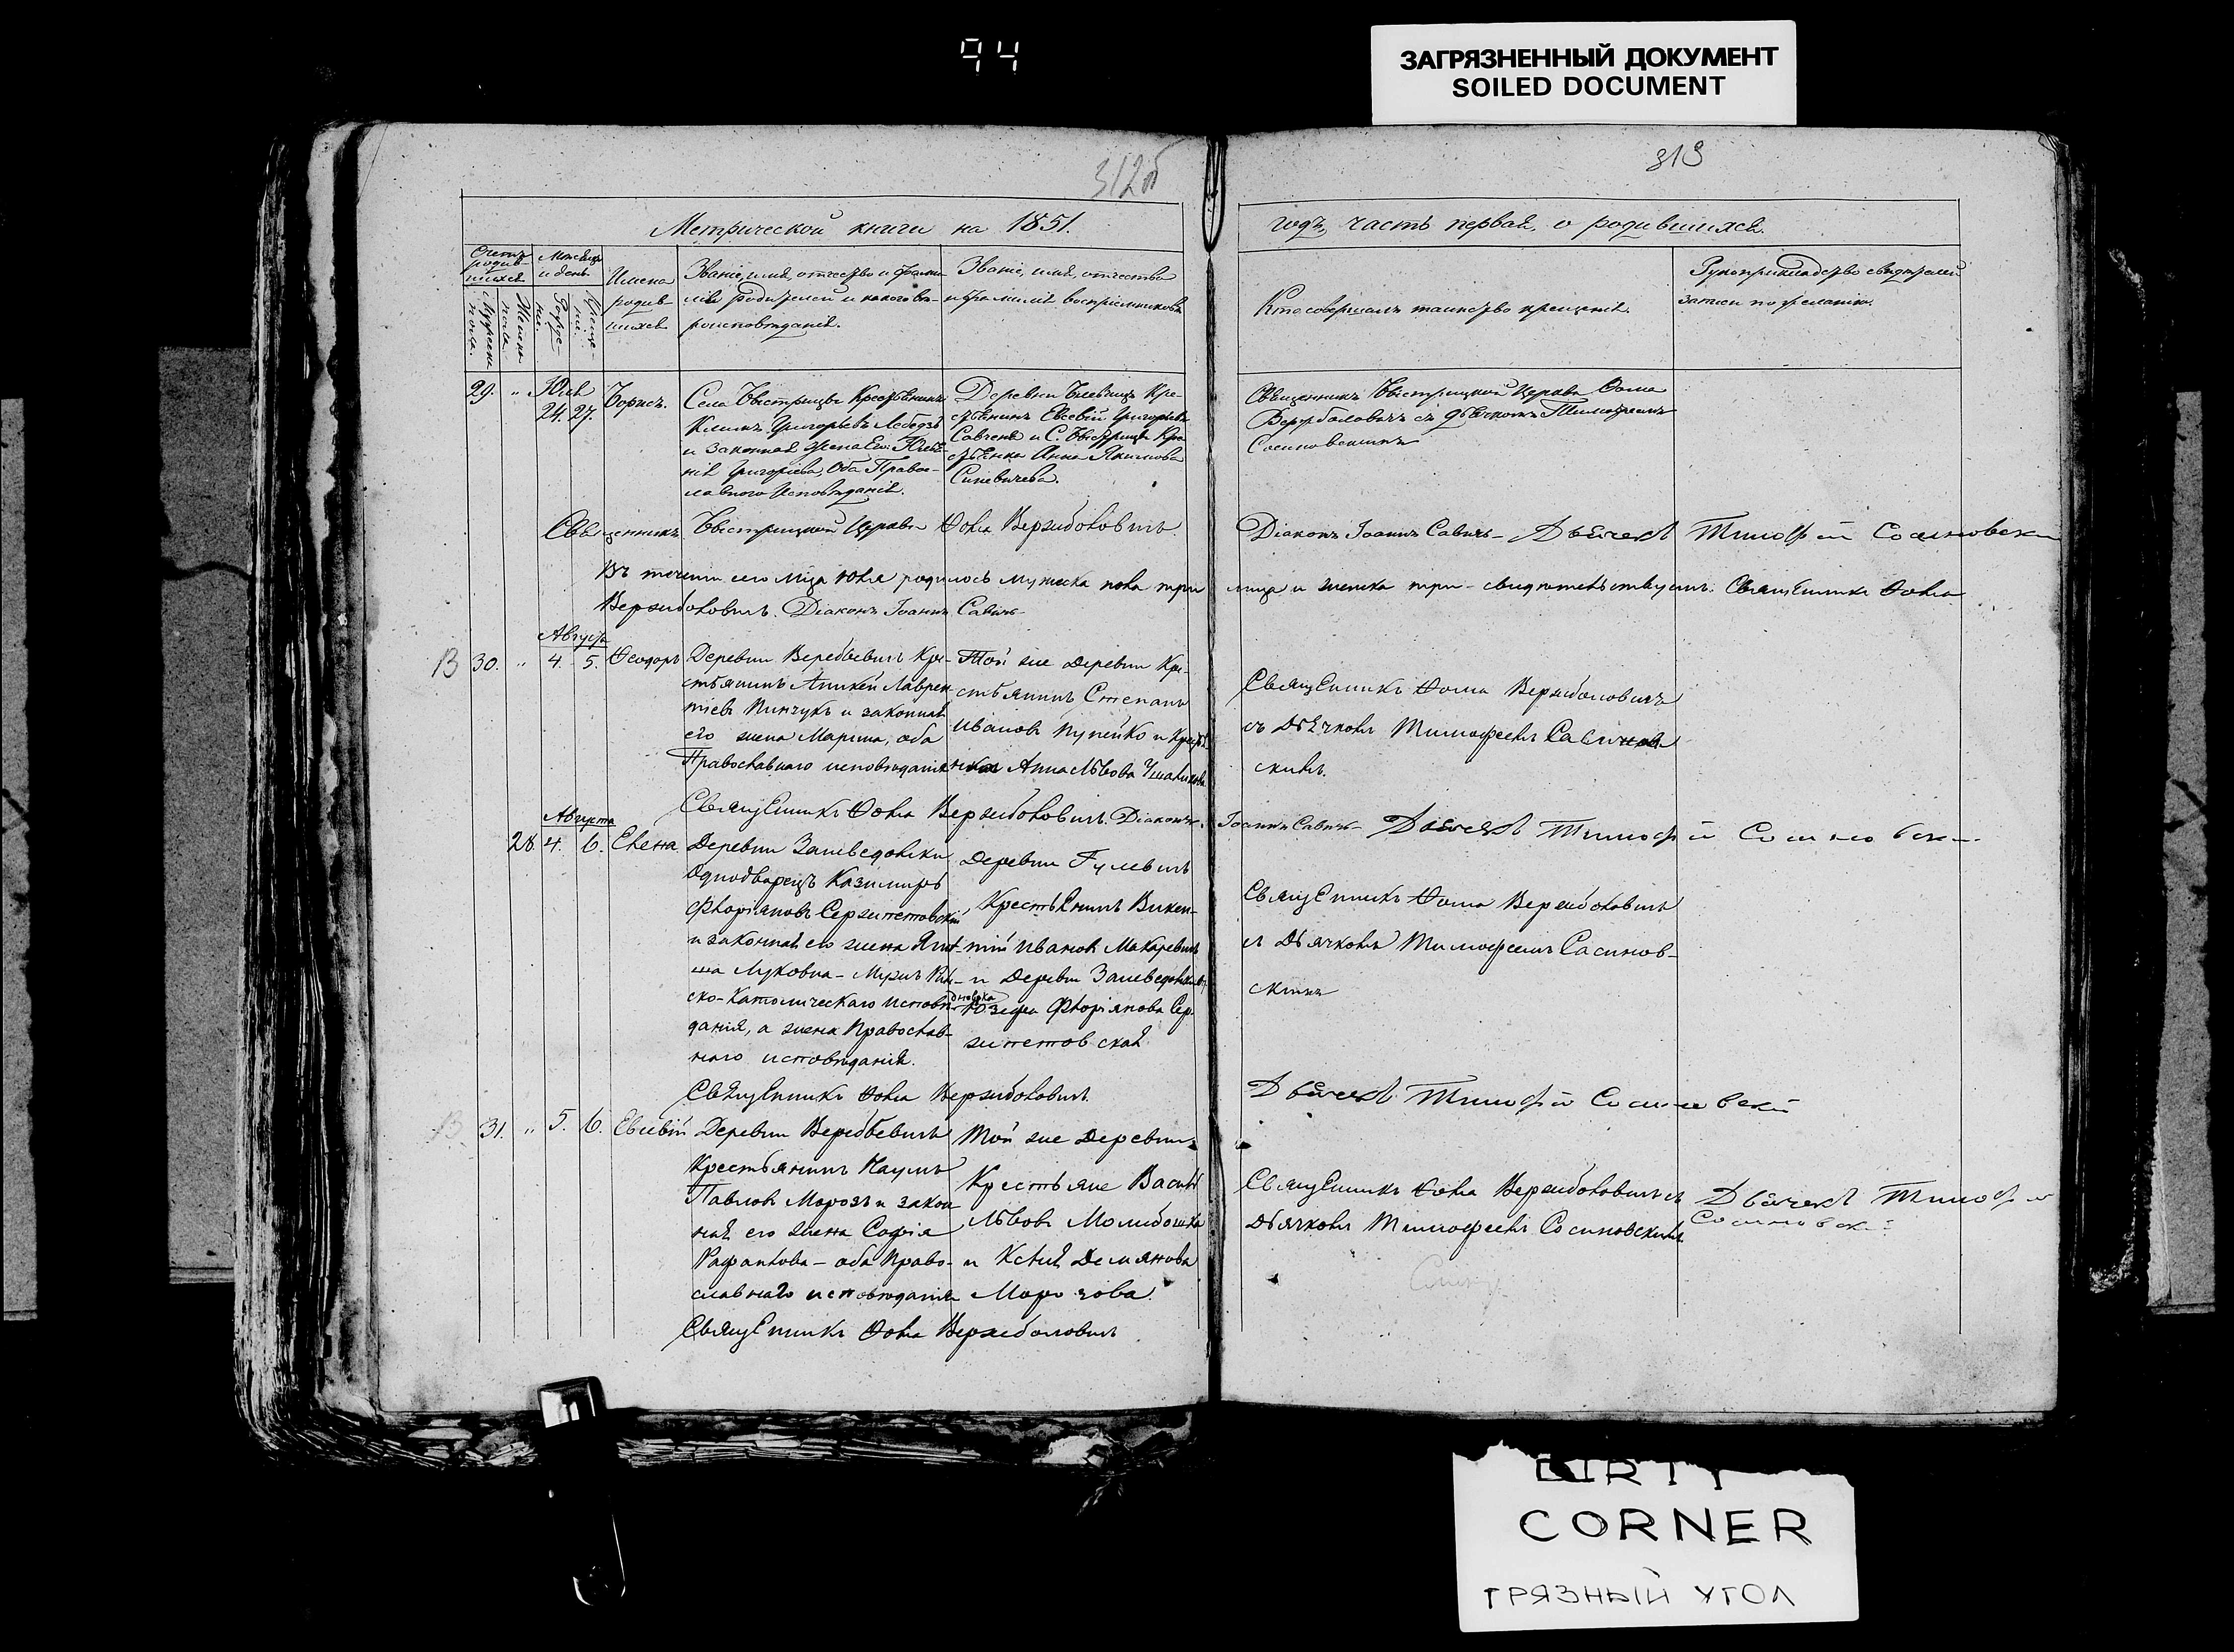 94
ЗАГРЯЗНЕННЫЙ ДОКУМЕНТ
SOILED DOCUMENT
312об
313
Метрической книги на 1851.
годъ, часть первая, о родившихся.
Счетъ родив-шихся
Мужеска пола.
Женска пола.
Месяцъ и день
Рожде-ния.
Креще-ния.
Имена
родив-
шихся
Званіе, имя, отчество и фами-
лія родителей и какого вѣ-
роисповѣданія.
Званіе, имя, отчество
и фамилія воспріемниковъ
Кто совершалъ таинство крещенія.
Рукоприкладство свидѣтелей
записи по желанію.
29. " Юля
24. 27. Борисъ.
Села Быстрицы Крестьянинъ
Климъ Григорьевъ Лебедзь
и законная жена Его
Григорьева, Оба Правос-
лавного Исповѣданія.
Деревни Кре-
стьянинъ Евсевій Григорьевъ
Савченя и С. Быстрицы Кре-
стьянка Анна Якимова
Синевичева.
Священникъ Быстрицкой Церкви Фома
Вержболовичъ съ Дьячкомъ Тимофеемъ
Сосиновскимъ
Священникъ Быстрицкой Церкви Фома Вержболовичъ.
Діаконъ Іоаннъ Савичъ - Дьячекъ Тимофей Сосиновски
Въ течени сего мца Юля родилось мужеска пола три
лица и женска три - свидѣтельствуемъ. Священникъ Фома
Вержболовичъ. Діаконъ Іоаннъ Савичъ
Августа
В 30. " 4. 5. Феодоръ
Деревни Веребьевичъ Кре-
стьянинъ Аникей Лаврен-
тіевъ Пинчукъ и законная
его жена Марина, оба
Православнаго исповѣданія
Той же деревни Кре-
стьянинъ Степанъ
Ивановъ Пупейко и
Анна Львова
Священникъ Фома Вержболовичъ
съ Дьячкомъ Тимофеемъ
скимъ.
Священникъ Фома Вержболовичъ. Діаконъ
Іоаннъ Савичъ - Дьячекъ Тимофей Сосиновски
Августа
28. 4. 6. Елена.
Деревни
Однодворецъ Казимиръ
Флоріановъ Сержпетовскій
и законная его жена
Луковна - Мужъ Рим-
ско-Католическаго исповѣ-
данія, а жена Православ-
наго исповѣданія.
Деревни Гулевичъ
Крестьянинъ Викен-
тій Ивановъ Макаревичъ
и Деревни
Юзефа Флоріянова Сер-
жпетовская
Священникъ Фома Вержболовичъ
съ Дьячкомъ Тимофеемъ Сасинов-
скимъ
Священникъ Фома Вержболовичъ.
Дьячекъ Тимофей Сосиновский
В. 31. " 5. 6. Евсевій
Деревни Веребьевичъ
Крестьянинъ Наумъ
Павловъ Морозъ и закон-
ная его жена Софія
Рафаилова - оба Право-
славнаго исповѣданія
Той же Деревни
Крестьяне Василь
Львовъ
и Ксенія Демянова
Морозова.
Священникъ Фома Вержболовичъ съ
Дьячкомъ Тимофеемъ Сосиновскимъ
Дьячекъ Тимофей
Сосиновски
Священникъ Фома Вержболовичъ
DIRTY
CORNER
ГРЯЗНЫЙ УГОЛ